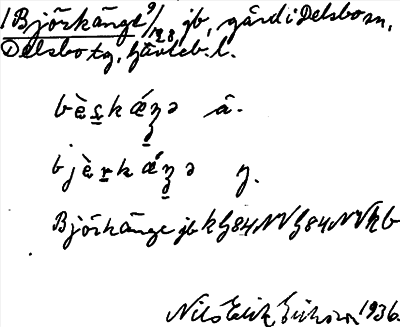 1 Björkänge 9/128 jb, gård i Delsbo sn,
Delsbo tg, Gävleb. l.
bɛ̀ṣkǽʒə ä.
bjɛ̀ṛkǽʒə y.
Björkänge jb kG84NV G84NV kb
Nils Erik Eriksson 1936.